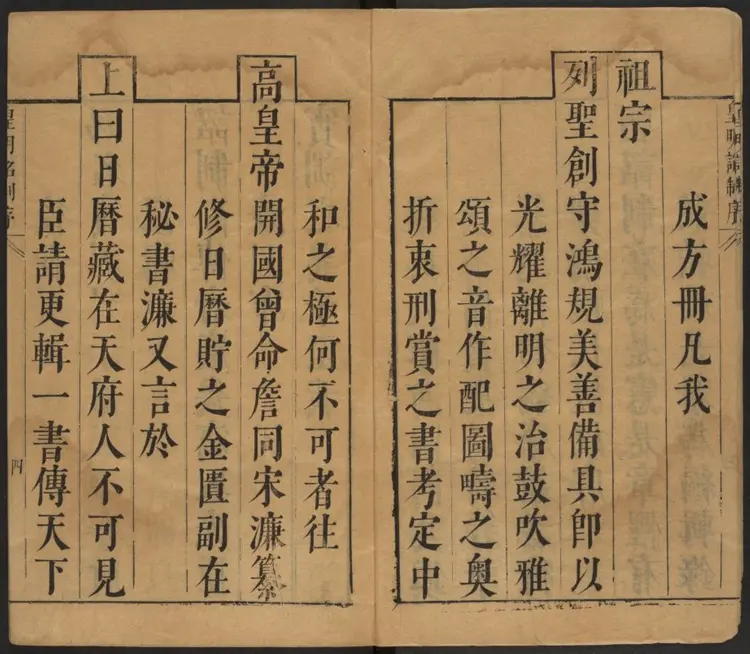 皇明詔制序
成方冊凡我
祖宗
列聖創守鴻規美善備具卽以
光耀離明之治鼓吹雅
頌之音作配圖疇之奥
折衷刑賞之書考定中
和之極何不可者往
高皇帝開國曾命詹同宋濂纂
修日曆貯之金匱副在
秘書濂又言於
上曰日曆藏在天府人不可見
臣請更輯一書傳天下
皇明詔制序
四